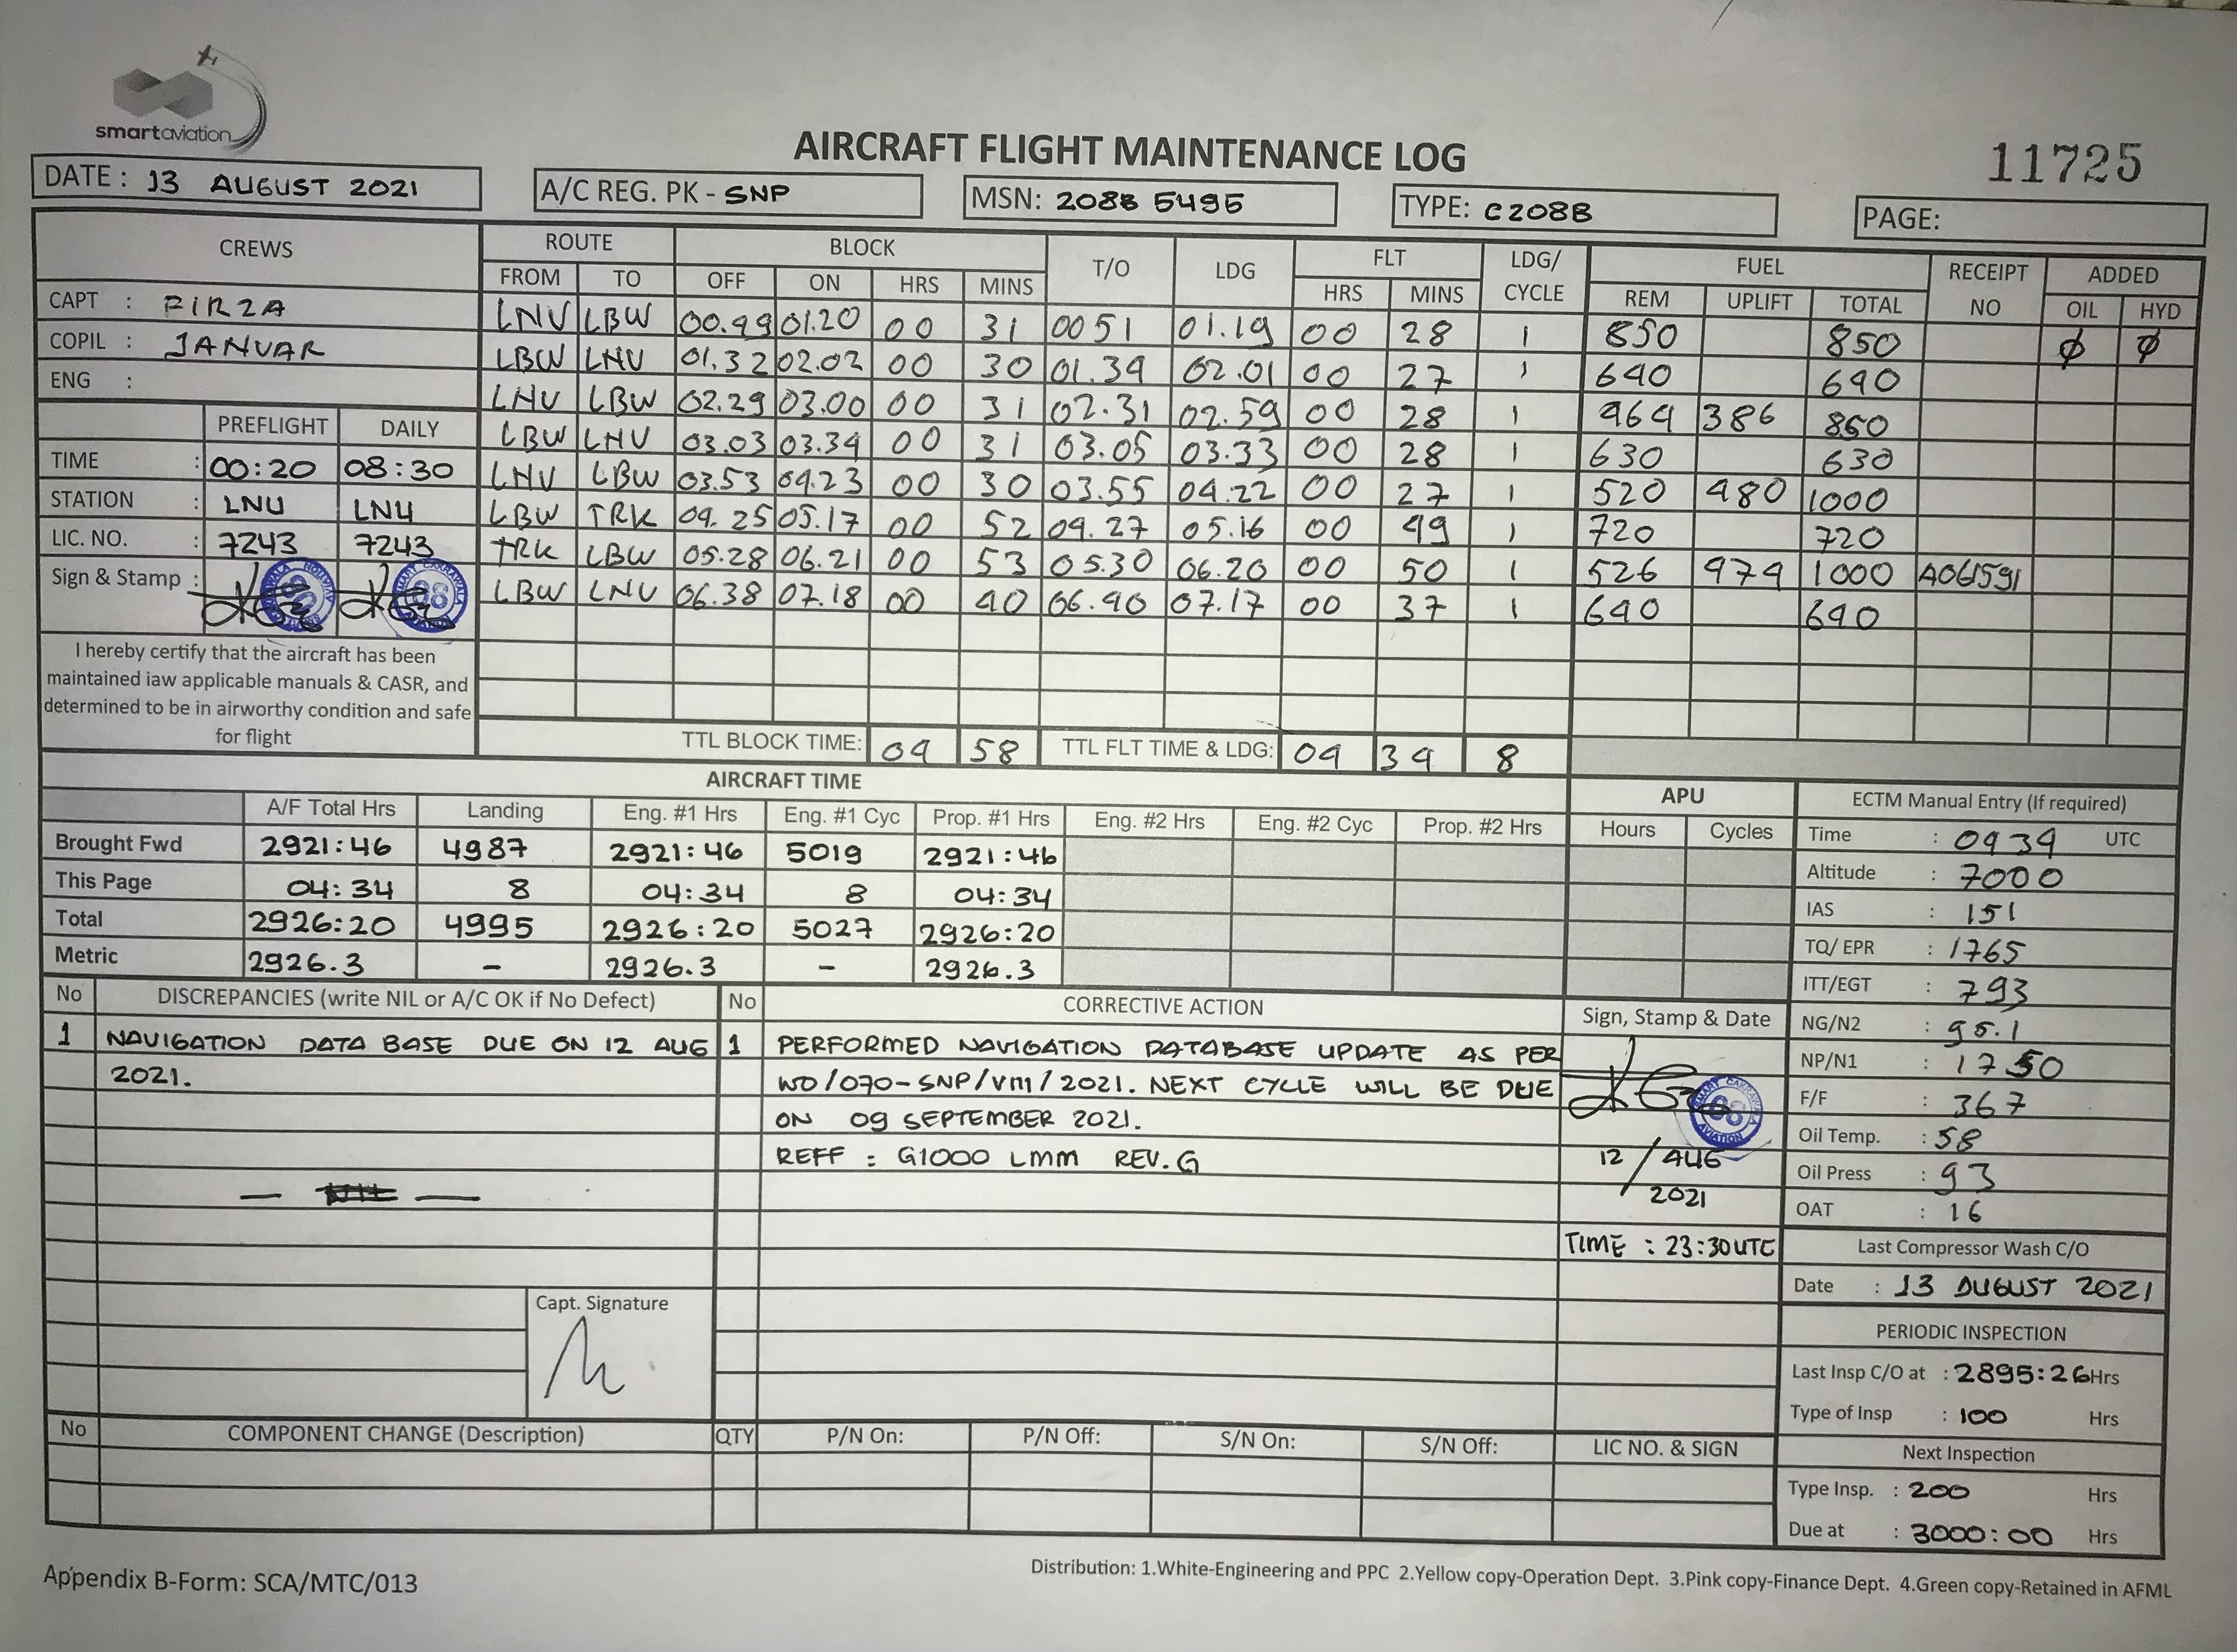 smartaviation
AIRCRAFT FLIGHT MAINTENANCE LOG
11725
DATE : 13 AUGUST 2021 A/C REG. PK - SNP MSN: 208B 5495 TYPE: C208B PAGE:
CREWS ROUTE BLOCK T/O LDG FLT LDG/ CYCLE FUEL RECEIPT NO ADDED
FROM TO OFF ON HRS MINS HRS MINS REM UPLIFT TOTAL OIL HYD
CAPT : FIRZA
COPIL : JANUAR
ENG :
PREFLIGHT DAILY
TIME : 00:20 08:30
STATION : LNU LNU
LIC. NO. : 7243 7243
Sign & Stamp :
I hereby certify that the aircraft has been
maintained iaw applicable manuals & CASR, and
determined to be in airworthy condition and safe
for flight
LNU LBW 00.49 01.20 00 31 0051 01.19 00 28 1 850 850 ϕ ϕ
LBW LNU 01.32 02.02 00 30 01.34 02.01 00 27 1 640 640
LNU LBW 02.29 03.00 00 31 02.31 02.59 00 28 1 464 386 850
LBW LNU 03.03 03.34 00 31 03.05 03.33 00 28 1 630 630
LNU LBW 03.53 04.23 00 30 03.55 04.22 00 27 1 520 480 1000
LBW TRK 04.25 05.17 00 52 04.27 05.16 00 49 1 720 720
TRK LBW 05.28 06.21 00 53 05.30 06.20 00 50 1 526 474 1000 A061591
LBW LNU 06.38 07.18 00 40 06.40 07.17 00 37 1 640 640
TTL BLOCK TIME: 04 58 TTL FLT TIME & LDG: 04 34 8
AIRCRAFT TIME
A/F Total Hrs Landing Eng. #1 Hrs Eng. #1 Cyc Prop. #1 Hrs Eng. #2 Hrs Eng. #2 Cyc Prop. #2 Hrs
Brought Fwd 2921:46 4987 2921:46 5019 2921:46
This Page 04:34 8 04:34 8 04:34
Total 2926:20 4995 2926:20 5027 2926:20
Metric 2926.3 - 2926.3 - 2926.3
APU
Hours Cycles
ECTM Manual Entry (If required)
Time : 0434 UTC
Altitude : 7000
IAS : 151
TQ/ EPR : 1765
ITT/EGT : 793
NG/N2 : 95.1
NP/N1 : 1750
F/F : 367
Oil Temp. : 58
Oil Press : 93
OAT : 16
Last Compressor Wash C/O
Date : 13 AUGUST 2021
PERIODIC INSPECTION
Last Insp C/O at : 2895:26 Hrs
Type of Insp : 100 Hrs
Next Inspection
Type Insp. : 200 Hrs
Due at : 3000:00 Hrs
No DISCREPANCIES (write NIL or A/C OK if No Defect)
1 NAVIGATION DATA BASE DUE ON 12 AUG
2021.
Capt. Signature
No CORRECTIVE ACTION
1 PERFORMED NAVIGATION DATABASE UPDATE AS PER
WO/070-SNP/VIII/2021. NEXT CYCLE WILL BE DUE
ON 09 SEPTEMBER 2021.
REFF : G1000 LMM REV.G
Sign, Stamp & Date
12 / AUG
2021
TIME : 23:30 UTC
No COMPONENT CHANGE (Description) QTY P/N On: P/N Off: S/N On: S/N Off: LIC NO. & SIGN
Appendix B-Form: SCA/MTC/013
Distribution: 1.White-Engineering and PPC 2.Yellow copy-Operation Dept. 3.Pink copy-Finance Dept. 4.Green copy-Retained in AFML